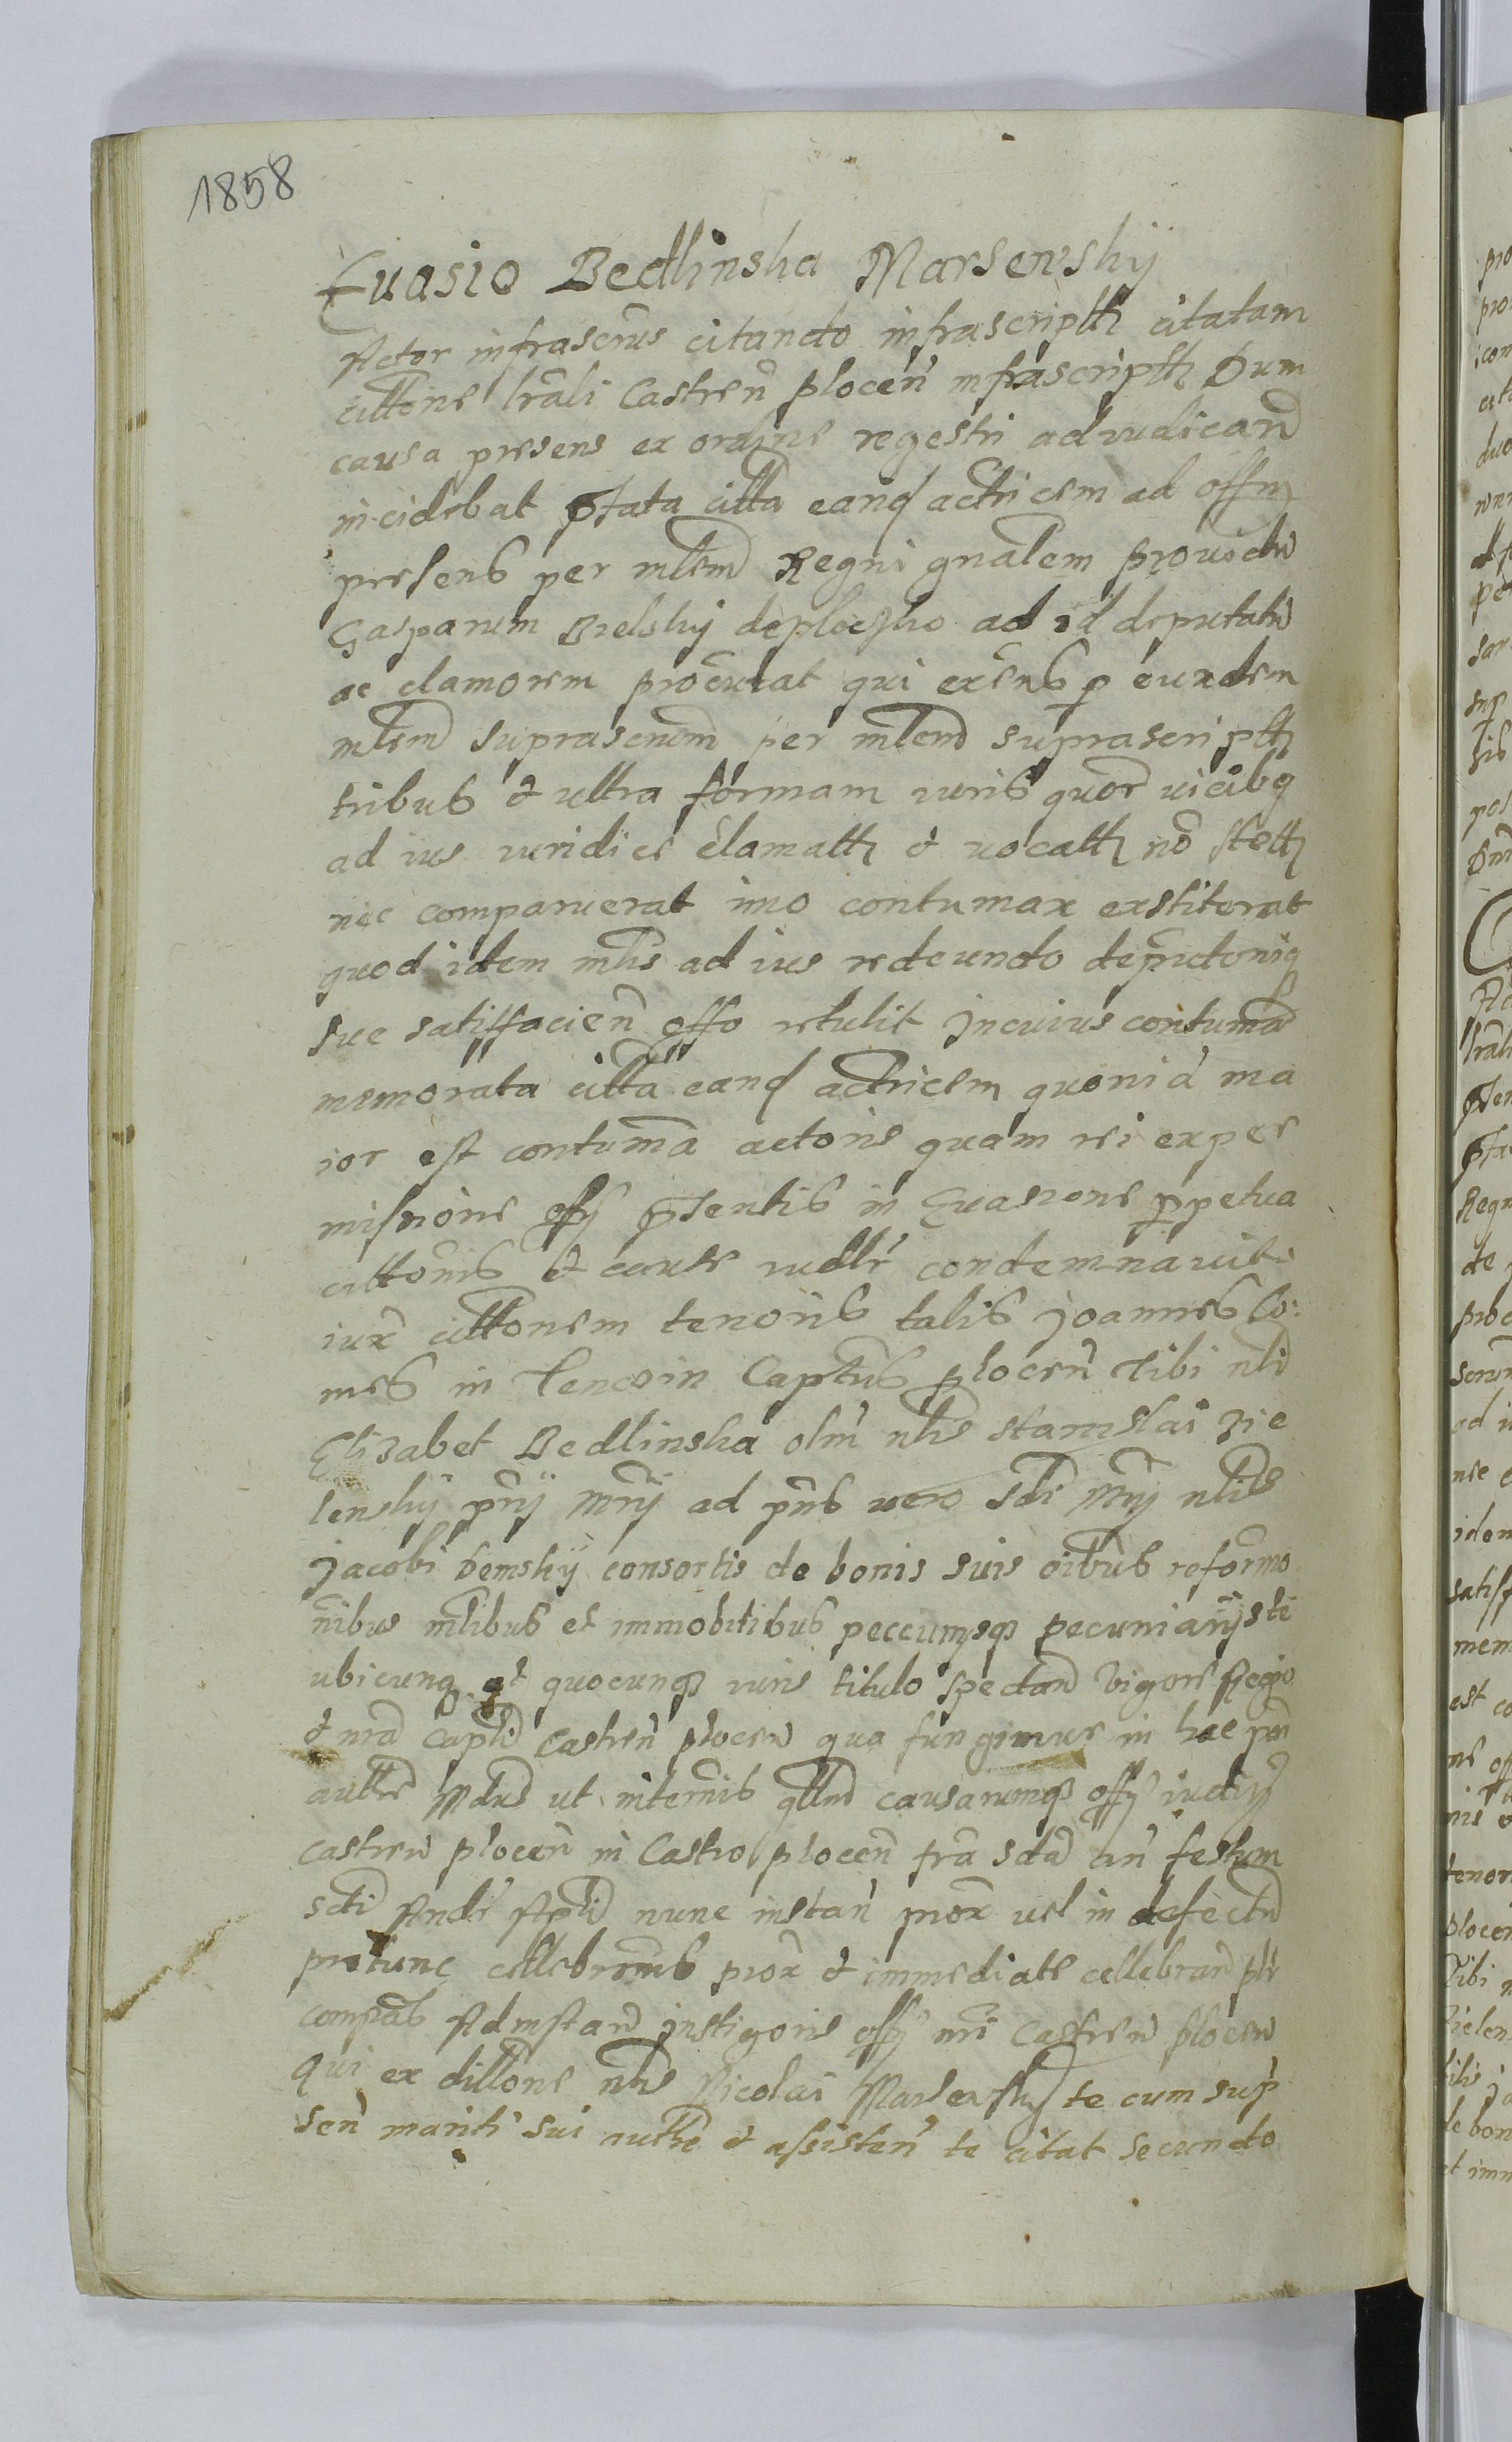 1858
Euasio Bedlinska Marsenskÿ
Actor infrascrũs citando infrascriptħ citatam
cittone lrãli Castreñ plocen̄ infrascriptħ Dum
causa presens ex ordine regestri adiudicand
incidebat ptata citta eand actricem ad offm
presens per mlem Regni gnalem prouidũ
Gasparum Bielskÿ de ploczko ad id deputatũ
ac clamorem procurat qui exens p eundem
mlem suprascrum per mlem suprascriptħ
tribus et ultra formam iuris quor uicibq
ad ius iuridice clamattħ et uocattħ nõ stetħ
nec comparuerat imo contumax exstiterat
quod idem mlis ad ius redeundo deputoniq
sue satisfacien̄ offo retulit Incuius contuma
memorata citta eand actricem quoniã ma
ior est contuma actoris quam rei ex per
missione offÿ ptentis in Euasione ppetua
cittonis et cause iudlr condemnauit
iux cittonem tenoris talis Joannes Co:
mes in Tenczin Captus plocen̄ Tibi nli
Elizabet Bedlinska olm nlis stanislai Zie
lenskÿ prij mrij ad pns uero sdi mrij nlis
Jacobi Demskÿ consortis de bonis suis oibus reformo
nibus mlibus et immobilibus peccumsqz pecuniarÿs te
ubicunq et quocunqz iuris titulo spectan Vigore Regio
et nra captli Castren̄ plocen̄ qua fungimur in hac pm
autte Mdus ut internis qllnd causarumqz offÿ iudicÿ
Castren̄ plocen̄ in Castro plocen̄ fra sda an̄ festum
scti Andr Apli nunc instan̄ prox uel in defectu
protunc cellebronis prox et immediate cellebran ple
compas Admstan Instigoris offÿ nri Castren̄ plocen̄
Qui ex dillone nlis Nicolai Marsenskÿ te cum sup
sen̄ mariti sui autte et assisten̄ te citat secundo